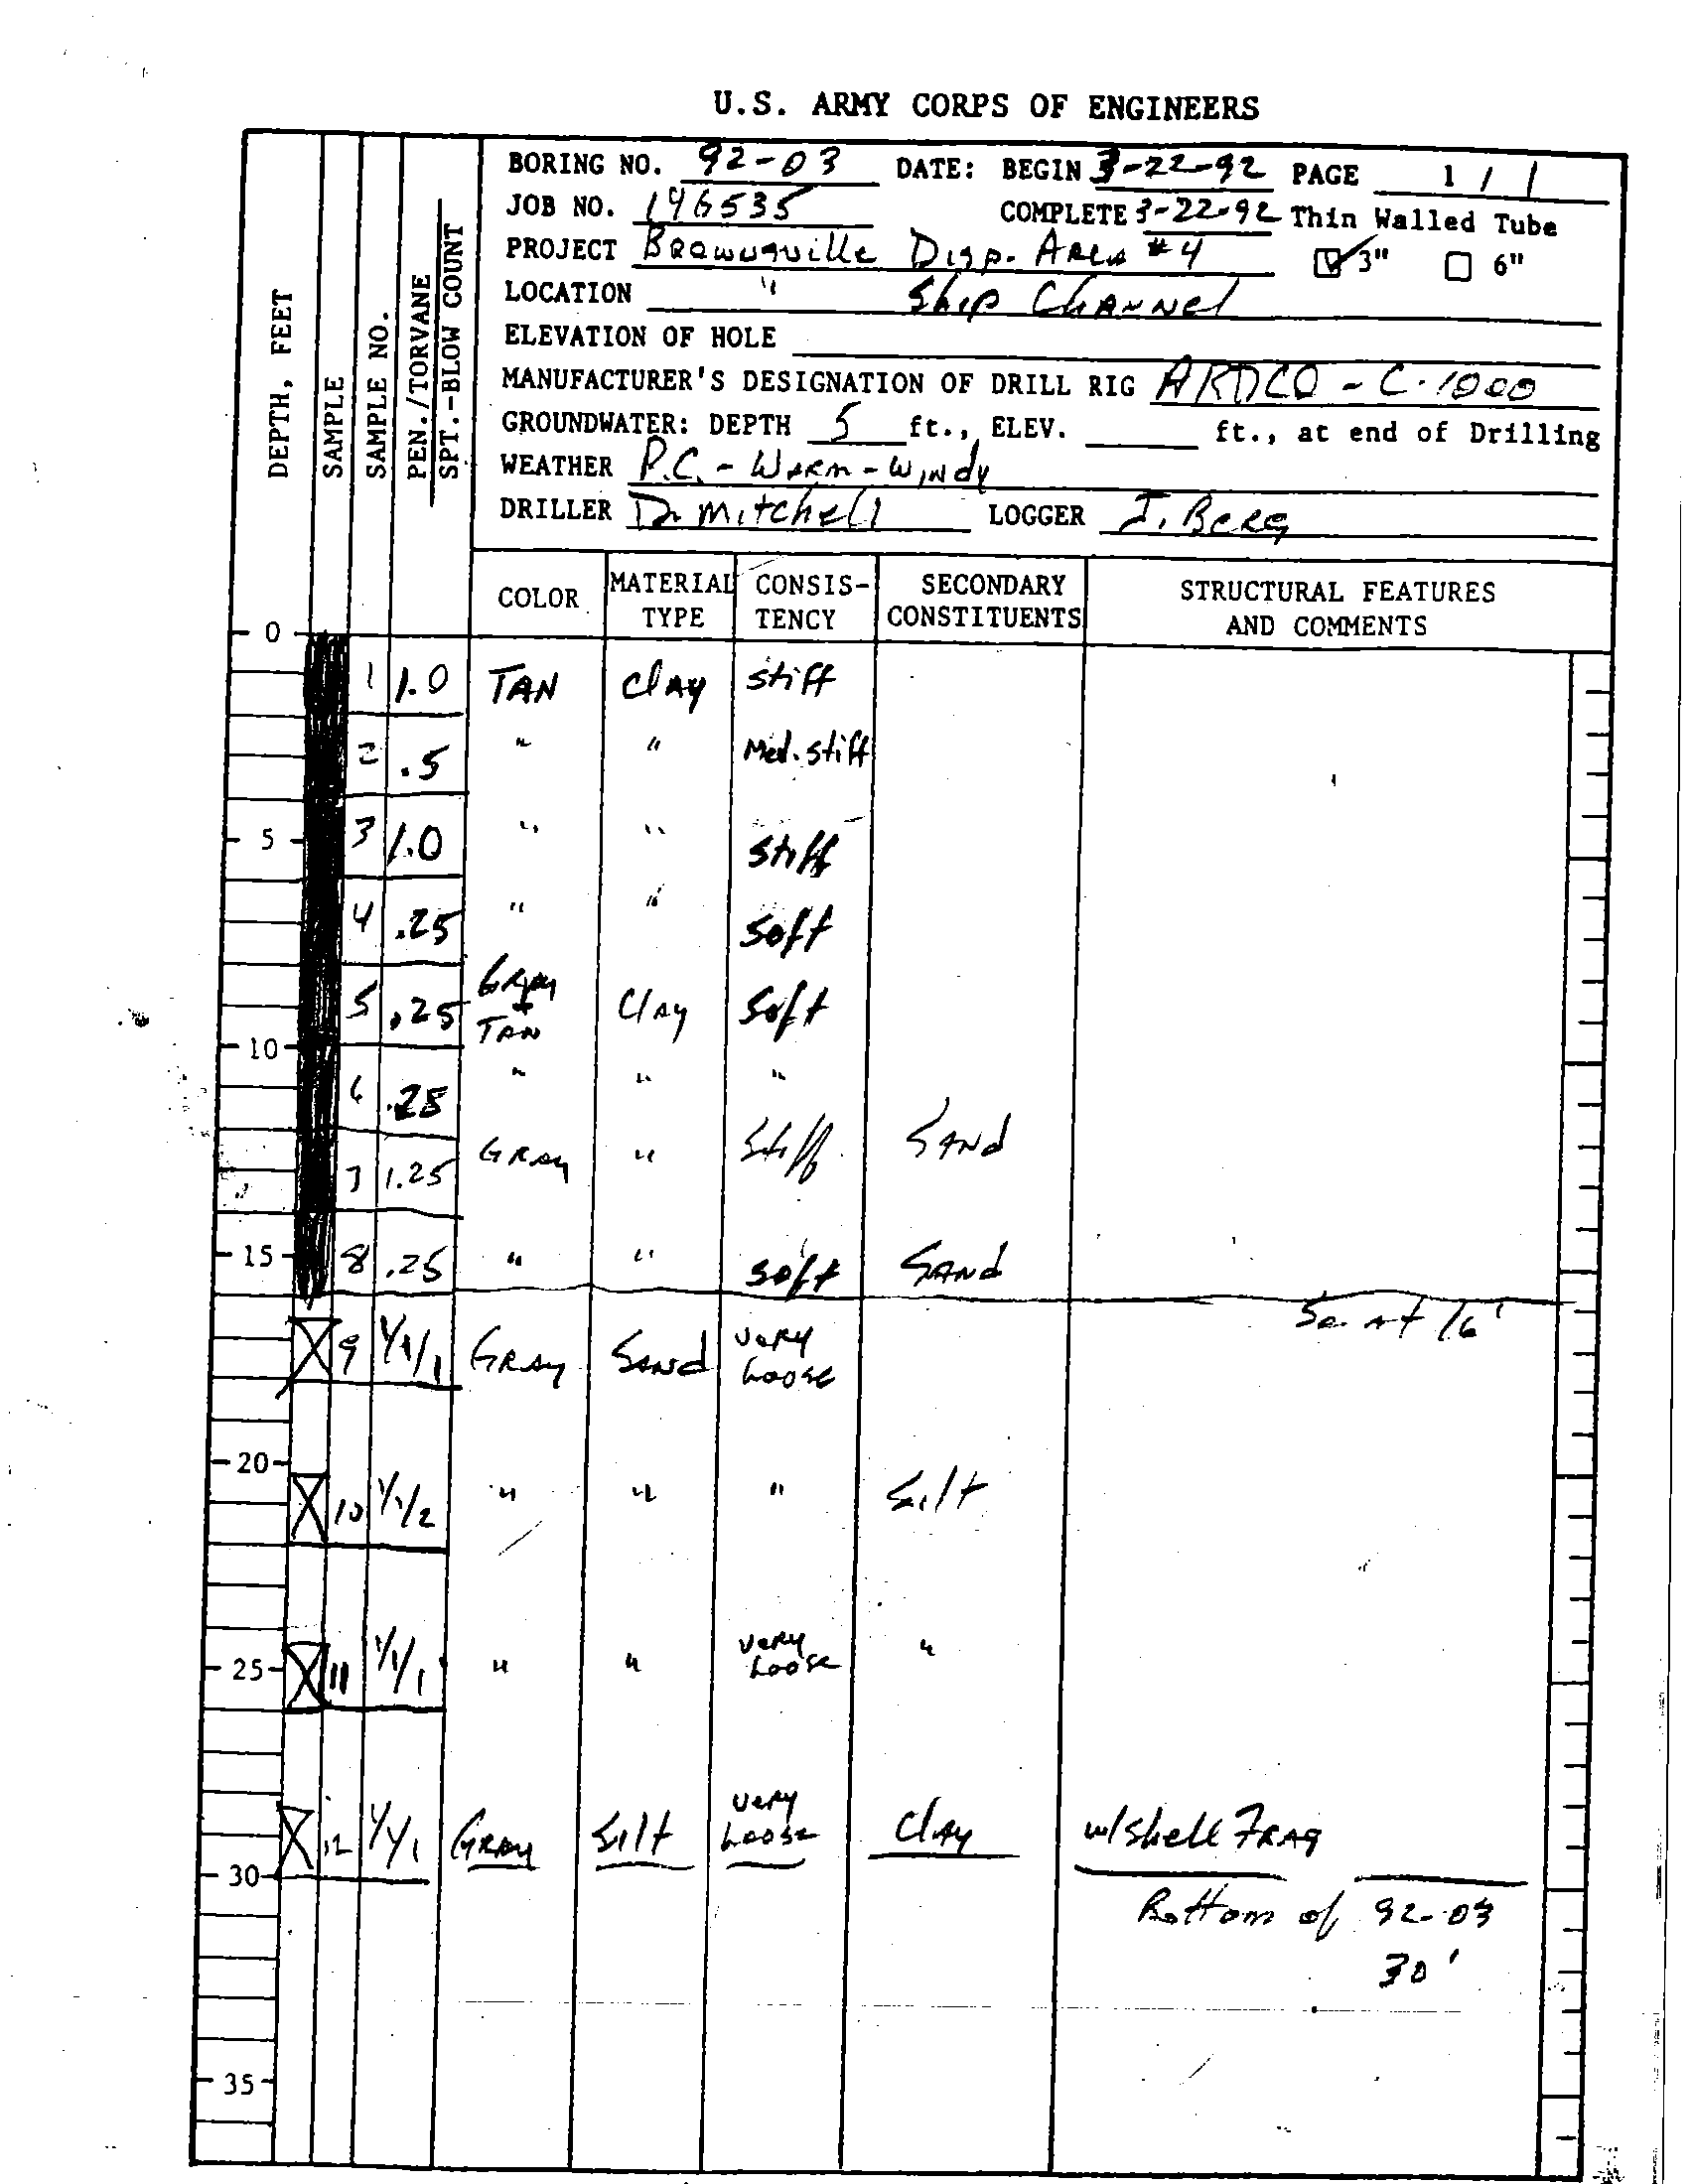 U.S. ARMY CORPS OF ENGINEERS
BORING NO. 92-03 DATE: BEGIN 3-22-92 PAGE 1 / 1
JOB NO. 146535 COMPLETE 3-22-92 Thin Walled Tube
PROJECT Brownsville Disp. Area #4 ☑ 3" ☐ 6"
LOCATION " Ship Channel
ELEVATION OF HOLE
MANUFACTURER'S DESIGNATION OF DRILL RIG ARDCO - C-1000
GROUNDWATER: DEPTH 5 ft., ELEV. ft., at end of Drilling
WEATHER P.C. - Warm - Windy
DRILLER D. Mitchell LOGGER J. Berg
DEPTH, FEET
SAMPLE
SAMPLE NO.
PEN./TORVANE
SPT.-BLOW COUNT
COLOR MATERIAL TYPE CONSIS-TENCY SECONDARY CONSTITUENTS STRUCTURAL FEATURES AND COMMENTS
0
1 1.0 TAN Clay stiff
2 .5 " " Med. stiff
5 3 1.0 " " stiff
4 .25 " " soft
5 .25 Gray + TAN Clay soft
10
6 .25 " " "
7 1.25 GRAY " stiff SAND
15 8 .25 " " soft SAND
SC at 16'
9 1/1/1 GRAY SAND very Loose
20
10 1/1/2 " " " Silt
25 11 1/1/1 " " very Loose "
12 1/1/1 GRAY Silt very Loose Clay w/shell FRAG
30
Bottom of 92-03
30'
35